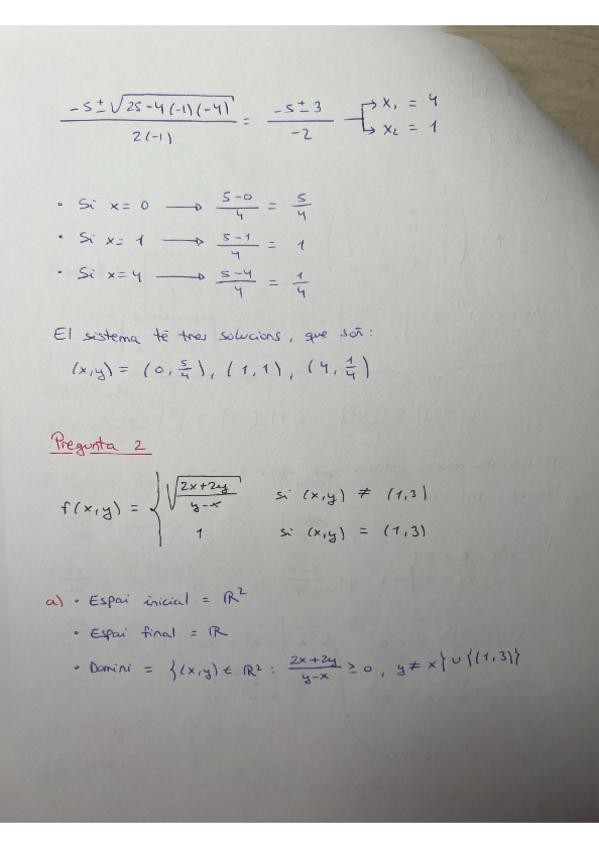 (-5 ± √(25-4(-1)(-4))) / 2(-1) = (-5 ± 3) / -2 → x₁ = 4
→ x₂ = 1
· Si x = 0 → (5-0)/4 = 5/4
· Si x = 1 → (5-1)/4 = 1
· Si x = 4 → (5-4)/4 = 1/4
El sistema té tres solucions, que són:
(x,y) = (0, 5/4), (1,1), (4, 1/4)
Pregunta 2
f(x,y) = { √((2x+2y)/(y-x)) si (x,y) ≠ (1,3)
1 si (x,y) = (1,3)
a) · Espai inicial = ℝ²
· Espai final = ℝ
· Domini = {(x,y) ∈ ℝ² : (2x+2y)/(y-x) ≥ 0, y ≠ x} ∪ {(1,3)}